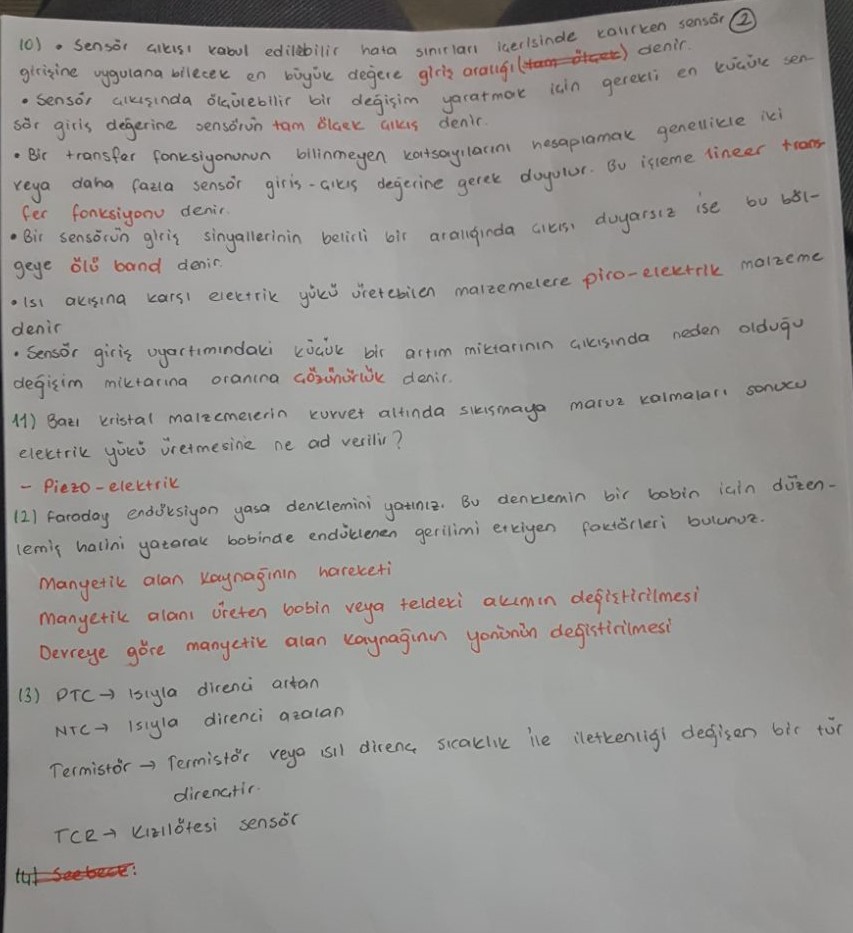 10) • Sensör çıkışı kabul edilebilir hata sınırları içerisinde kalırken sensör ②
girişine uygulana bilecek en büyük değere giriş aralığı (tam ölçek) denir.
• Sensör çıkışında ölçülebilir bir değişim yaratmak için gerekli en küçük sen-
sör giriş değerine sensörün tam ölçek çıkış denir.
• Bir transfer fonksiyonunun bilinmeyen katsayılarını hesaplamak genellikle iki
veya daha fazla sensör giriş-çıkış değerine gerek duyulur. Bu işleme lineer trans-
fer fonksiyonu denir.
• Bir sensörün giriş sinyallerinin belirli bir aralığında çıkışı duyarsız ise bu böl-
geye ölü band denir.
• Isı akışına karşı elektrik yükü üretebilen malzemelere piro-elektrik malzeme
denir
• Sensör giriş uyartımındaki küçük bir artım miktarının çıkışında neden olduğu
değişim miktarına oranına çözünürlük denir.
11) Bazı kristal malzemelerin kuvvet altında sıkışmaya maruz kalmaları sonucu
elektrik yükü üretmesine ne ad verilir?
- Piezo-elektrik
12) Faraday endüksiyon yasa denklemini yazınız. Bu denklemin bir bobin için düzen-
lemiş halini yazarak bobinde endüklenen gerilimi etkiyen faktörleri bulunuz.
Manyetik alan kaynağının hareketi
Manyetik alanı üreten bobin veya teldeki akımın değiştirilmesi
Devreye göre manyetik alan kaynağının yönünün değiştirilmesi
13) PTC → Isıyla direnci artan
NTC → Isıyla direnci azalan
Termistör → Termistör veya ısıl direnç sıcaklık ile iletkenliği değişen bir tür
dirençtir.
TCR → Kızılötesi sensör
14) Seebeck: